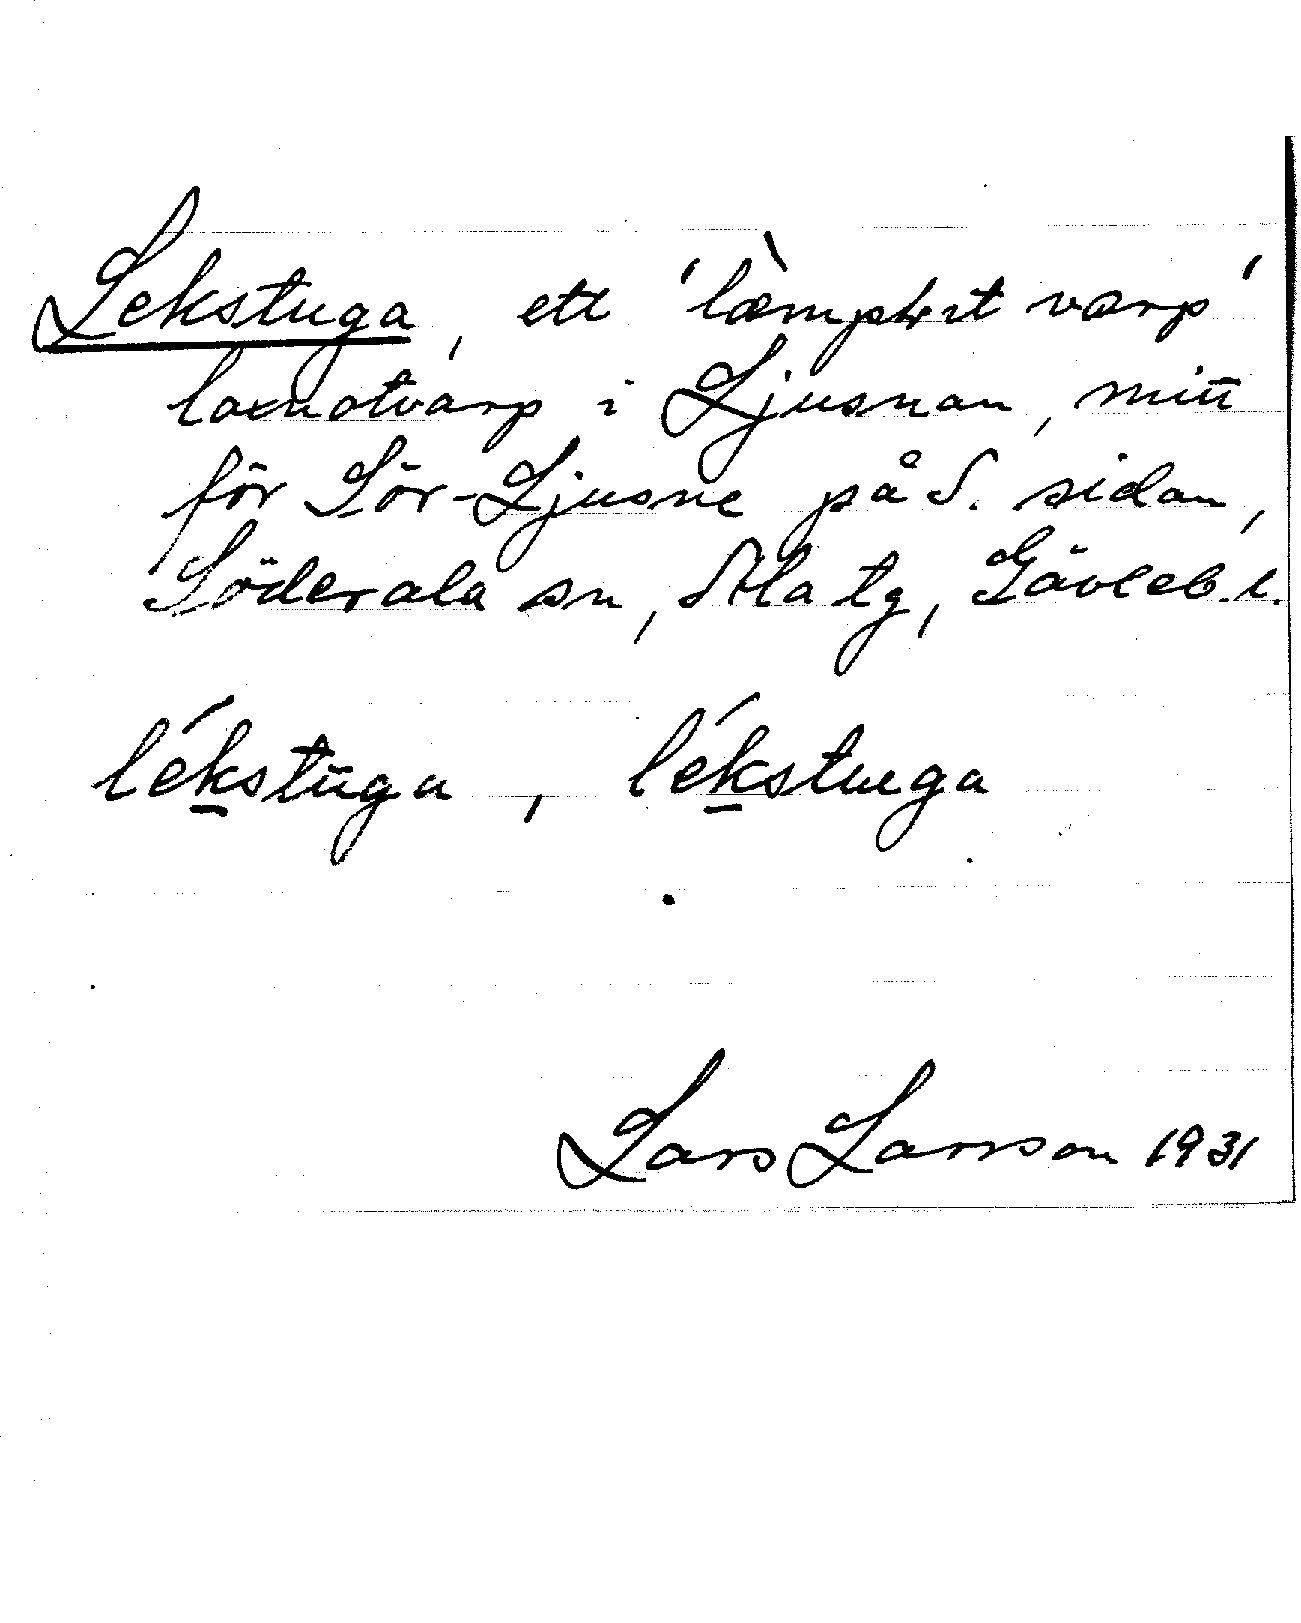 Lekstuga, ett 'læ̀mplıt værp'
laxnotvarp i Ljusnan, mitt
för Sör-Ljusne på S. sidan,
Söderala sn, Ala tg, Gävleb. l.
lék̲stūga, lék̲stuga
Lars Larsson 1931